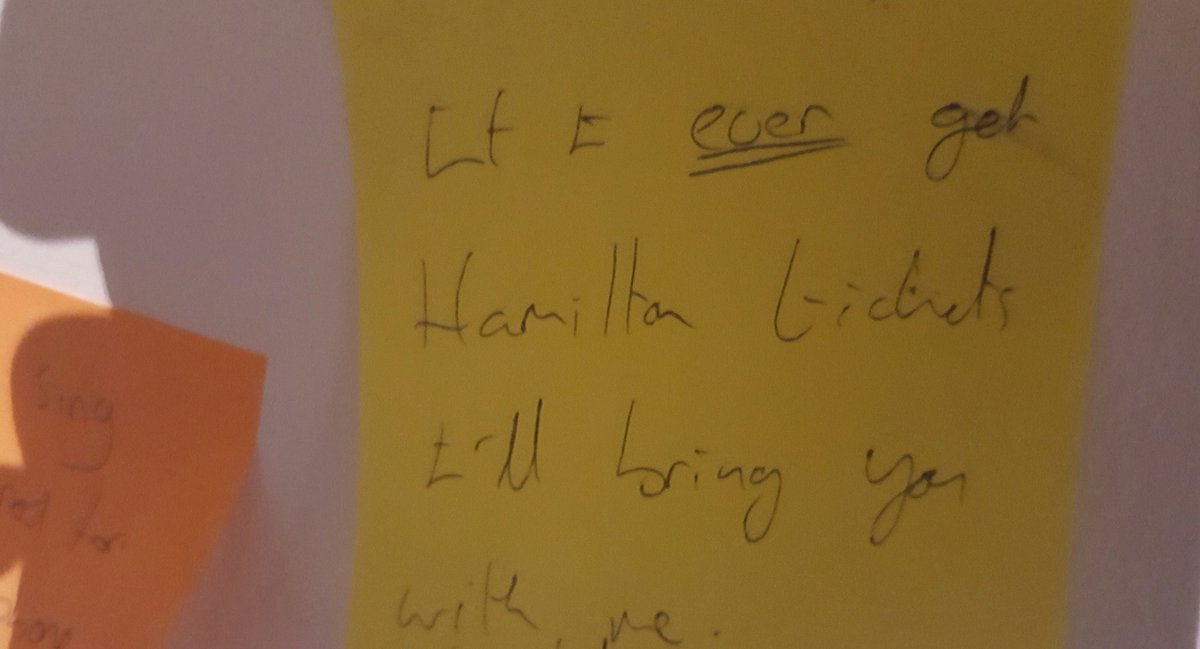 If I ever get
Hamilton tickets
I'll bring you
with me.
Sing
for